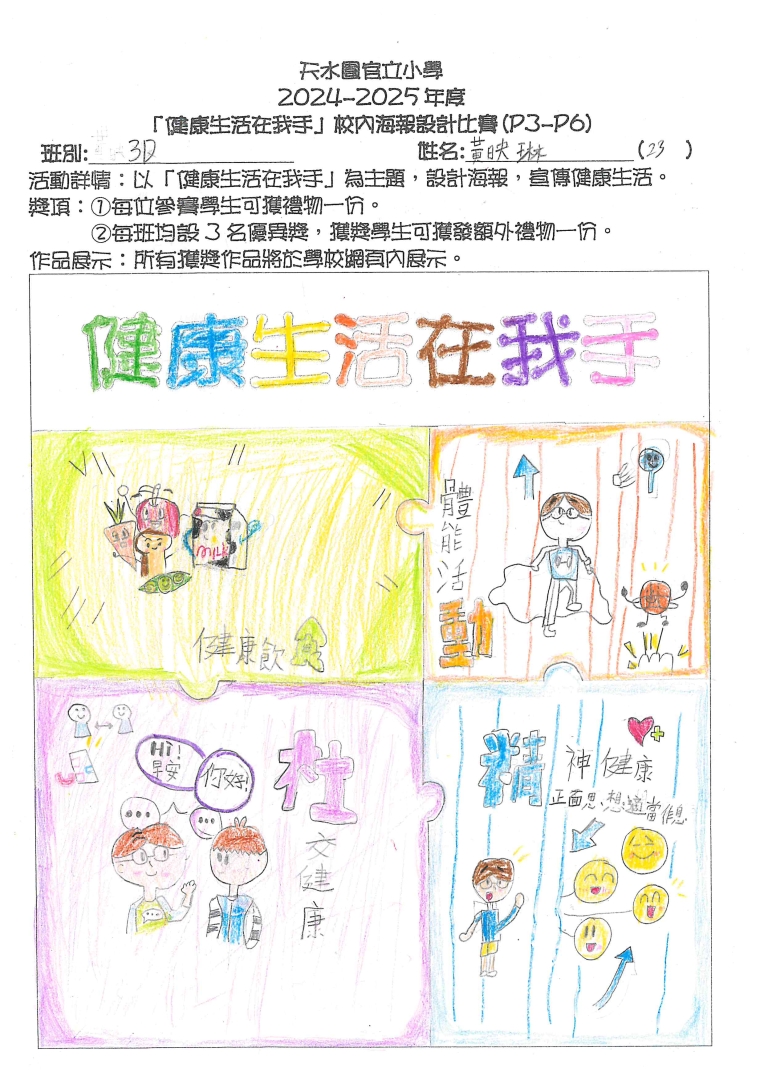 天水圍官立小學
2024-2025年度
「健康生活在我手」校內海報設計比賽(P3-P6)
班別: 3D 姓名: 黃映琳 (23)
活動詳情：以「健康生活在我手」為主題，設計海報，宣傳健康生活。
獎項：①每位參賽學生可獲禮物一份。
②每班均設3名優異獎，獲獎學生可獲發額外禮物一份。
作品展示：所有獲獎作品將於學校網頁內展示。
健康生活在我手
MILK
健康飲食
體能活動
Hi!
早安
你好!
社交健康
精神健康
正面思想、適當作息